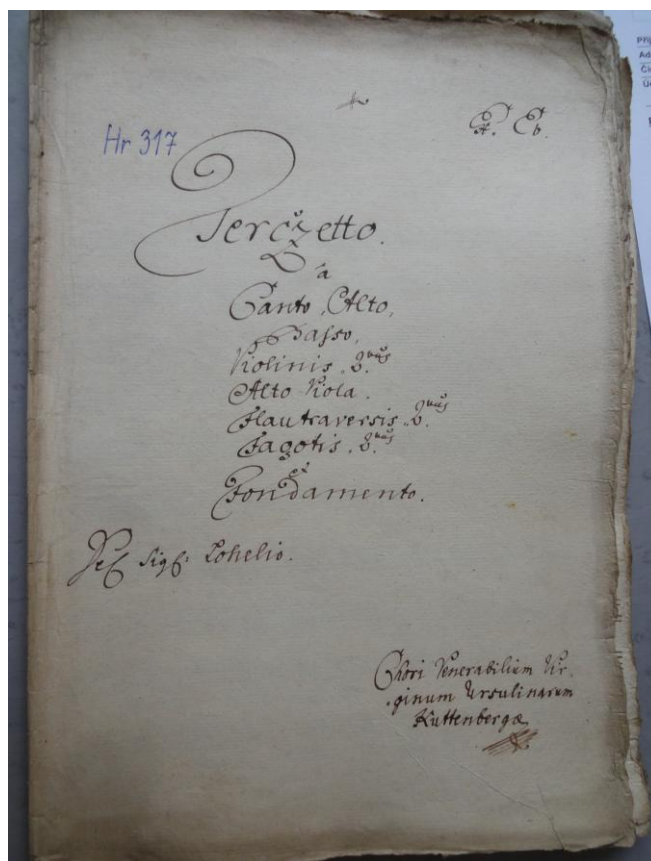 Hr 317
Terczetto.
à
Canto, Alto,
Basso,
Violinis. 2.bus
Alto Viola.
Flautraversis. 2.bus
Fagotis. 2.bus
et
Fondamento.
Del Sigr: Lohelio.
Chori Venerabilium Vir-
-ginum Ursulinarum
Kuttenbergæ